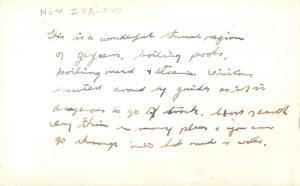 NEW ZEALAND
This is a wonderful thermal region
of geysers, boiling pools,
boiling mud & steam. Visitors
escorted around by guides as it is
dangerous to go off track. Crust of earth
very thin in many places & you can
go through into hot mud & water.